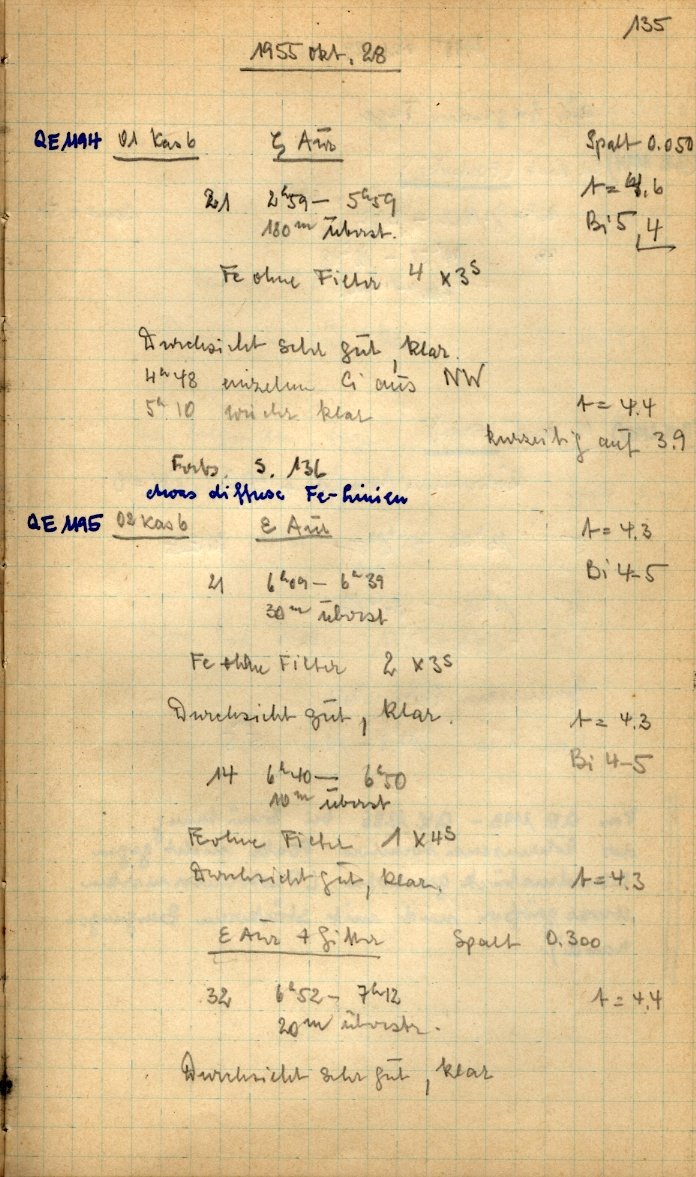 135
1955 Okt. 28
QE 1194 01 Kas b ζ Aur Spalt 0.050
21 2ʰ59 – 5ʰ59 t = 4.6
180ᵐ überst. Bi 5, 4
Fe ohne Filter 4 x 3ˢ
Durchsicht sehr gut, klar.
4ʰ48 einzelne Ci aus NW
5ʰ10 wieder klar t = 4.4
kurzzeitig auf 3.9
Forts. S. 136
etwas diffuse Fe-Linien
QE 1195 02 Kas b ε Aur t = 4.3
21 6ʰ09 – 6ʰ39 Bi 4-5
30ᵐ überst
Fe ohne Filter 2 x 3ˢ
Durchsicht gut, klar. t = 4.3
14 6ʰ40 – 6ʰ50 Bi 4-5
10ᵐ überst
Fe ohne Filter 1 x 4ˢ
Durchsicht gut, klar. t = 4.3
ε Aur + Gitter Spalt 0.300
32 6ʰ52 – 7ʰ12 t = 4.4
20ᵐ überstr.
Durchsicht sehr gut, klar